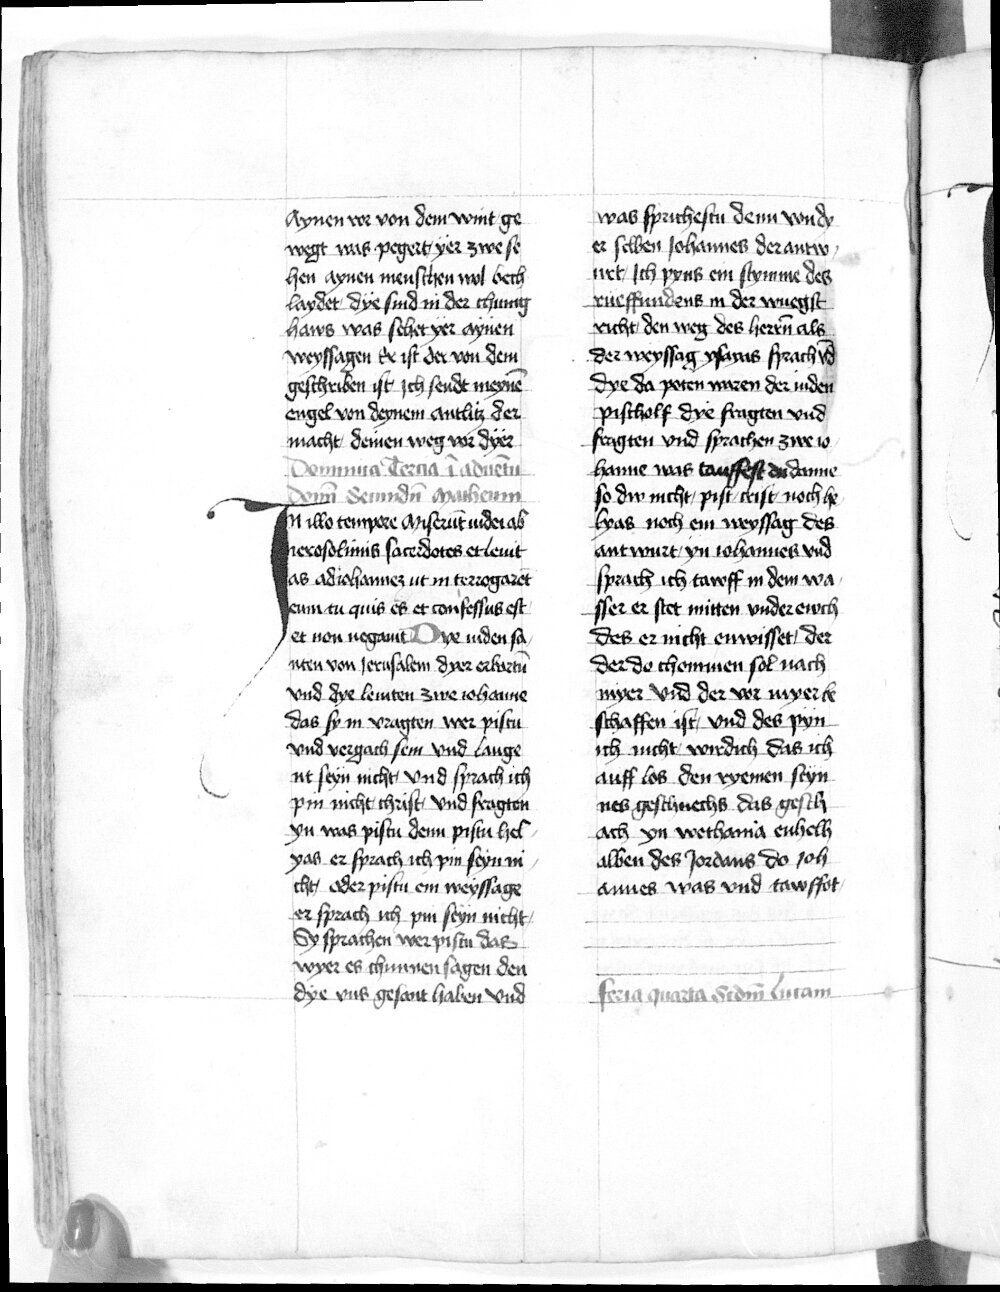 Aynen ror von dem wint ge
wegt was pegert yer zwe se
hen aynen menschen wol bech
laydet dye sind in der chunig
haws was sehet yer aynen
weyssagen Er ist der von dem
geschriben ist Ich sendt meynē
engel von deynem antlitz der
macht deinen weg vor dyer
Dominica Tercia ī advētu
domī Secundū Matheum
In illo tempore Miserūt iudei ab
ierosolimis sacerdotes et levit
as ad iohannez ut in terrogarēt
eum tu quis es et confessus est
et non negauit Dye iuden sa
nten von Jerusalem dyer erbartū
vnd dye leuiten zwe iohanne
das sy in vragten wer pistu
vnd vergach sein vnd lauge
nt seyn nicht vnd sprach ich
pin nicht christ vnd fragten
yn was pistu denn pistu hel
yas er sprach ich pin seyn ni
cht oder pistu ein weyssage
er sprach ich pin seyn nicht
Sy sprachen wer pistu das
wyer es chunnen sagen den
dye vns gesant haben vnd
was sprichestu denn von dy
er selben Johannes der antw
urt Ich pyns ein stymme des
rueffundens in der wuegst
richt den weg des herrn als
der weyssag ysayas sprach vd
dye da poten waren der iuden
pischolf dye fragten vnd
fragten vnd sprachen zwe io
hanne was tauffest du danne
so dw nicht pist crist noch he
lyas noch ein weyssag des
antwurt yn iohannes vnd
sprach ich tawff in dem wa
sser er stet mitten vnder ewch
des er nicht enwisset der
der do chommen sol nach
myer vnd der vor myer be
schaffen ist vnd des pyn
ich nicht wirdich das ich
auff los den ryemen seyn
nes geschuechs das gesch
ach yn wethania enhelh
alben des Jordans do Joh
annes was vnd tawffot
feria quarta Scdm̄ Lucam